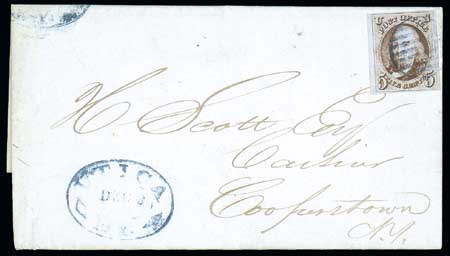 POST OFFICE
5 5
FIVE CENTS
H Scott Esq
Cashier
Cooperstown
N.Y.
UTICA
DEC
N.Y.